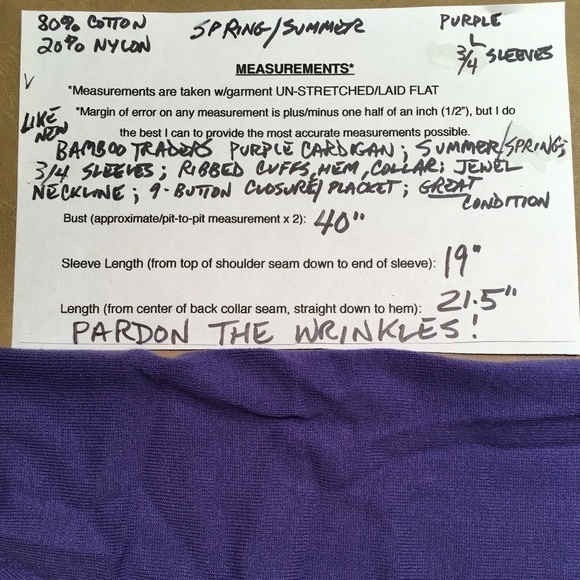 80% COTTON
20% NYLON
SPRING/SUMMER
PURPLE
L
3/4 SLEEVES
MEASUREMENTS*
*Measurements are taken w/garment UN-STRETCHED/LAID FLAT
*Margin of error on any measurement is plus/minus one half of an inch (1/2"), but I do
the best I can to provide the most accurate measurements possible.
LIKE
NEW
BAMBOO TRADERS PURPLE CARDIGAN; SUMMER/SPRING;
3/4 SLEEVES; RIBBED CUFFS, HEM, COLLAR; JEWEL
NECKLINE; 9-BUTTON CLOSURE/PLACKET; GREAT
CONDITION
Bust (approximate/pit-to-pit measurement x 2): 40"
Sleeve Length (from top of shoulder seam down to end of sleeve): 19"
Length (from center of back collar seam, straight down to hem): 21.5"
PARDON THE WRINKLES!